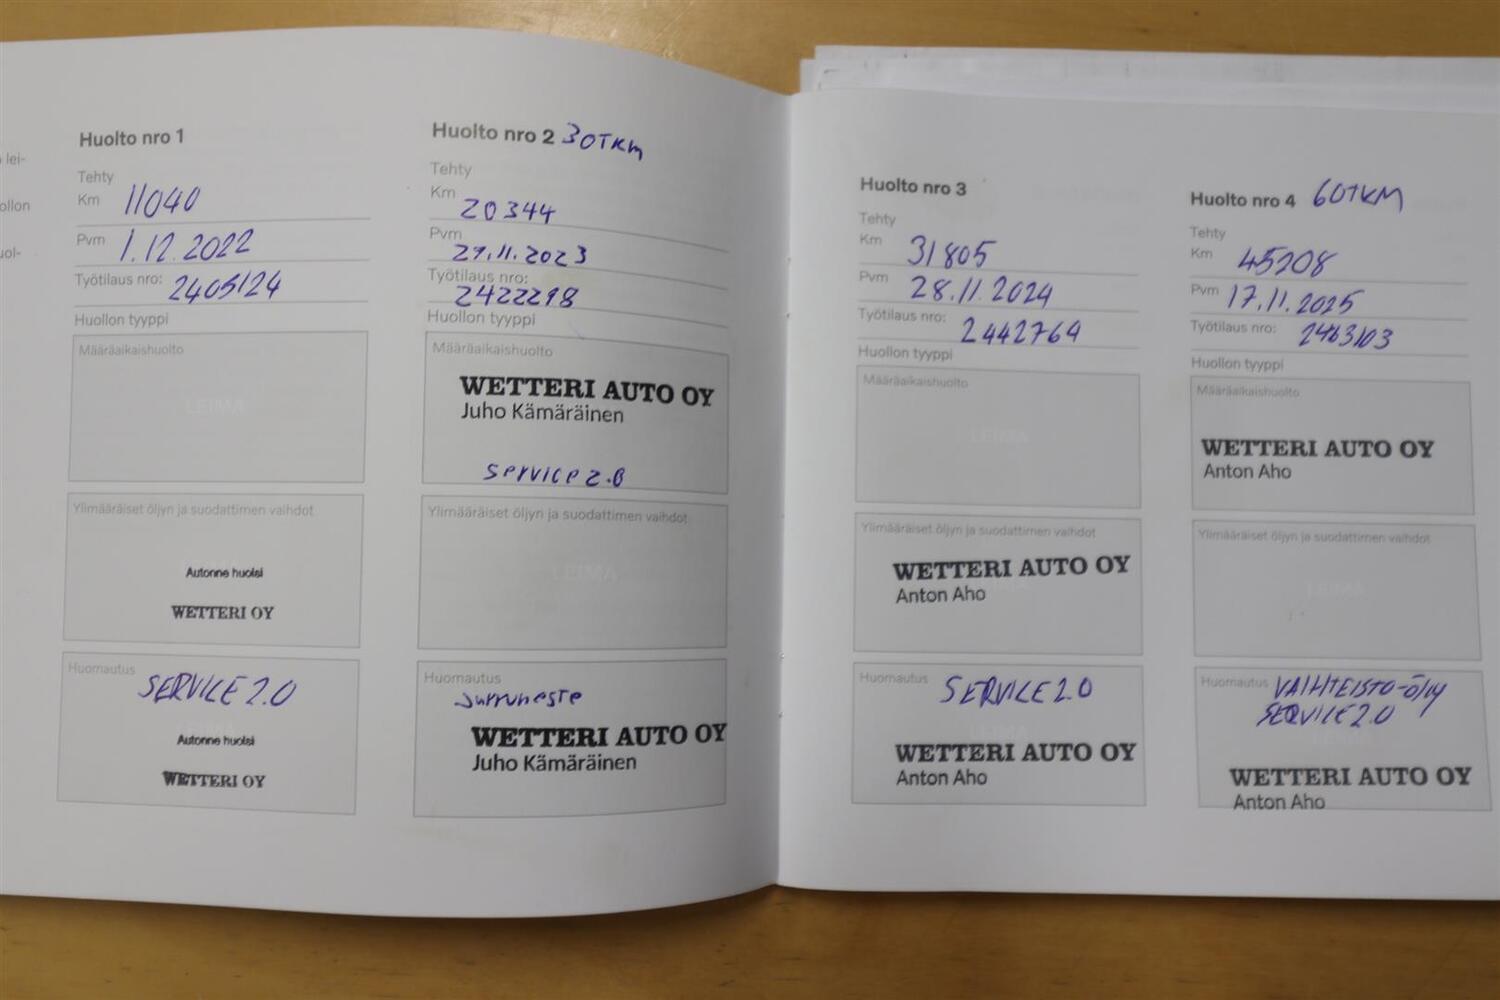 lei-
ollon
uol-
Huolto nro 1
Tehty
Km 11040
Pvm 1.12.2022
Työtilaus nro: 2405124
Huollon tyyppi
Määräaikaishuolto
LEIMA
Ylimääräiset öljyn ja suodattimen vaihdot
Autonne huolsi
WETTERI OY
Huomautus
SERVICE 2.0
Autonne huolsi
WETTERI OY
Huolto nro 2 30TKM
Tehty
Km 20344
Pvm 29.11.2023
Työtilaus nro:
2422298
Huollon tyyppi
Määräaikaishuolto
WETTERI AUTO OY
Juho Kämäräinen
Service 2.0
Ylimääräiset öljyn ja suodattimen vaihdot
LEIMA
Huomautus
Jarruneste
WETTERI AUTO OY
Juho Kämäräinen
Huolto nro 3
Tehty
Km 31805
Pvm 28.11.2024
Työtilaus nro: 2442764
Huollon tyyppi
Määräaikaishuolto
LEIMA
Ylimääräiset öljyn ja suodattimen vaihdot
WETTERI AUTO OY
Anton Aho
Huomautus SERVICE 2.0
WETTERI AUTO OY
Anton Aho
Huolto nro 4 60TKM
Tehty
Km 45208
Pvm 17.11.2025
Työtilaus nro: 2463103
Huollon tyyppi
Määräaikaishuolto
WETTERI AUTO OY
Anton Aho
Ylimääräiset öljyn ja suodattimen vaihdot
LEIMA
Huomautus VAIHTEISTO-ÖLJY
SERVICE 2.0
WETTERI AUTO OY
Anton Aho